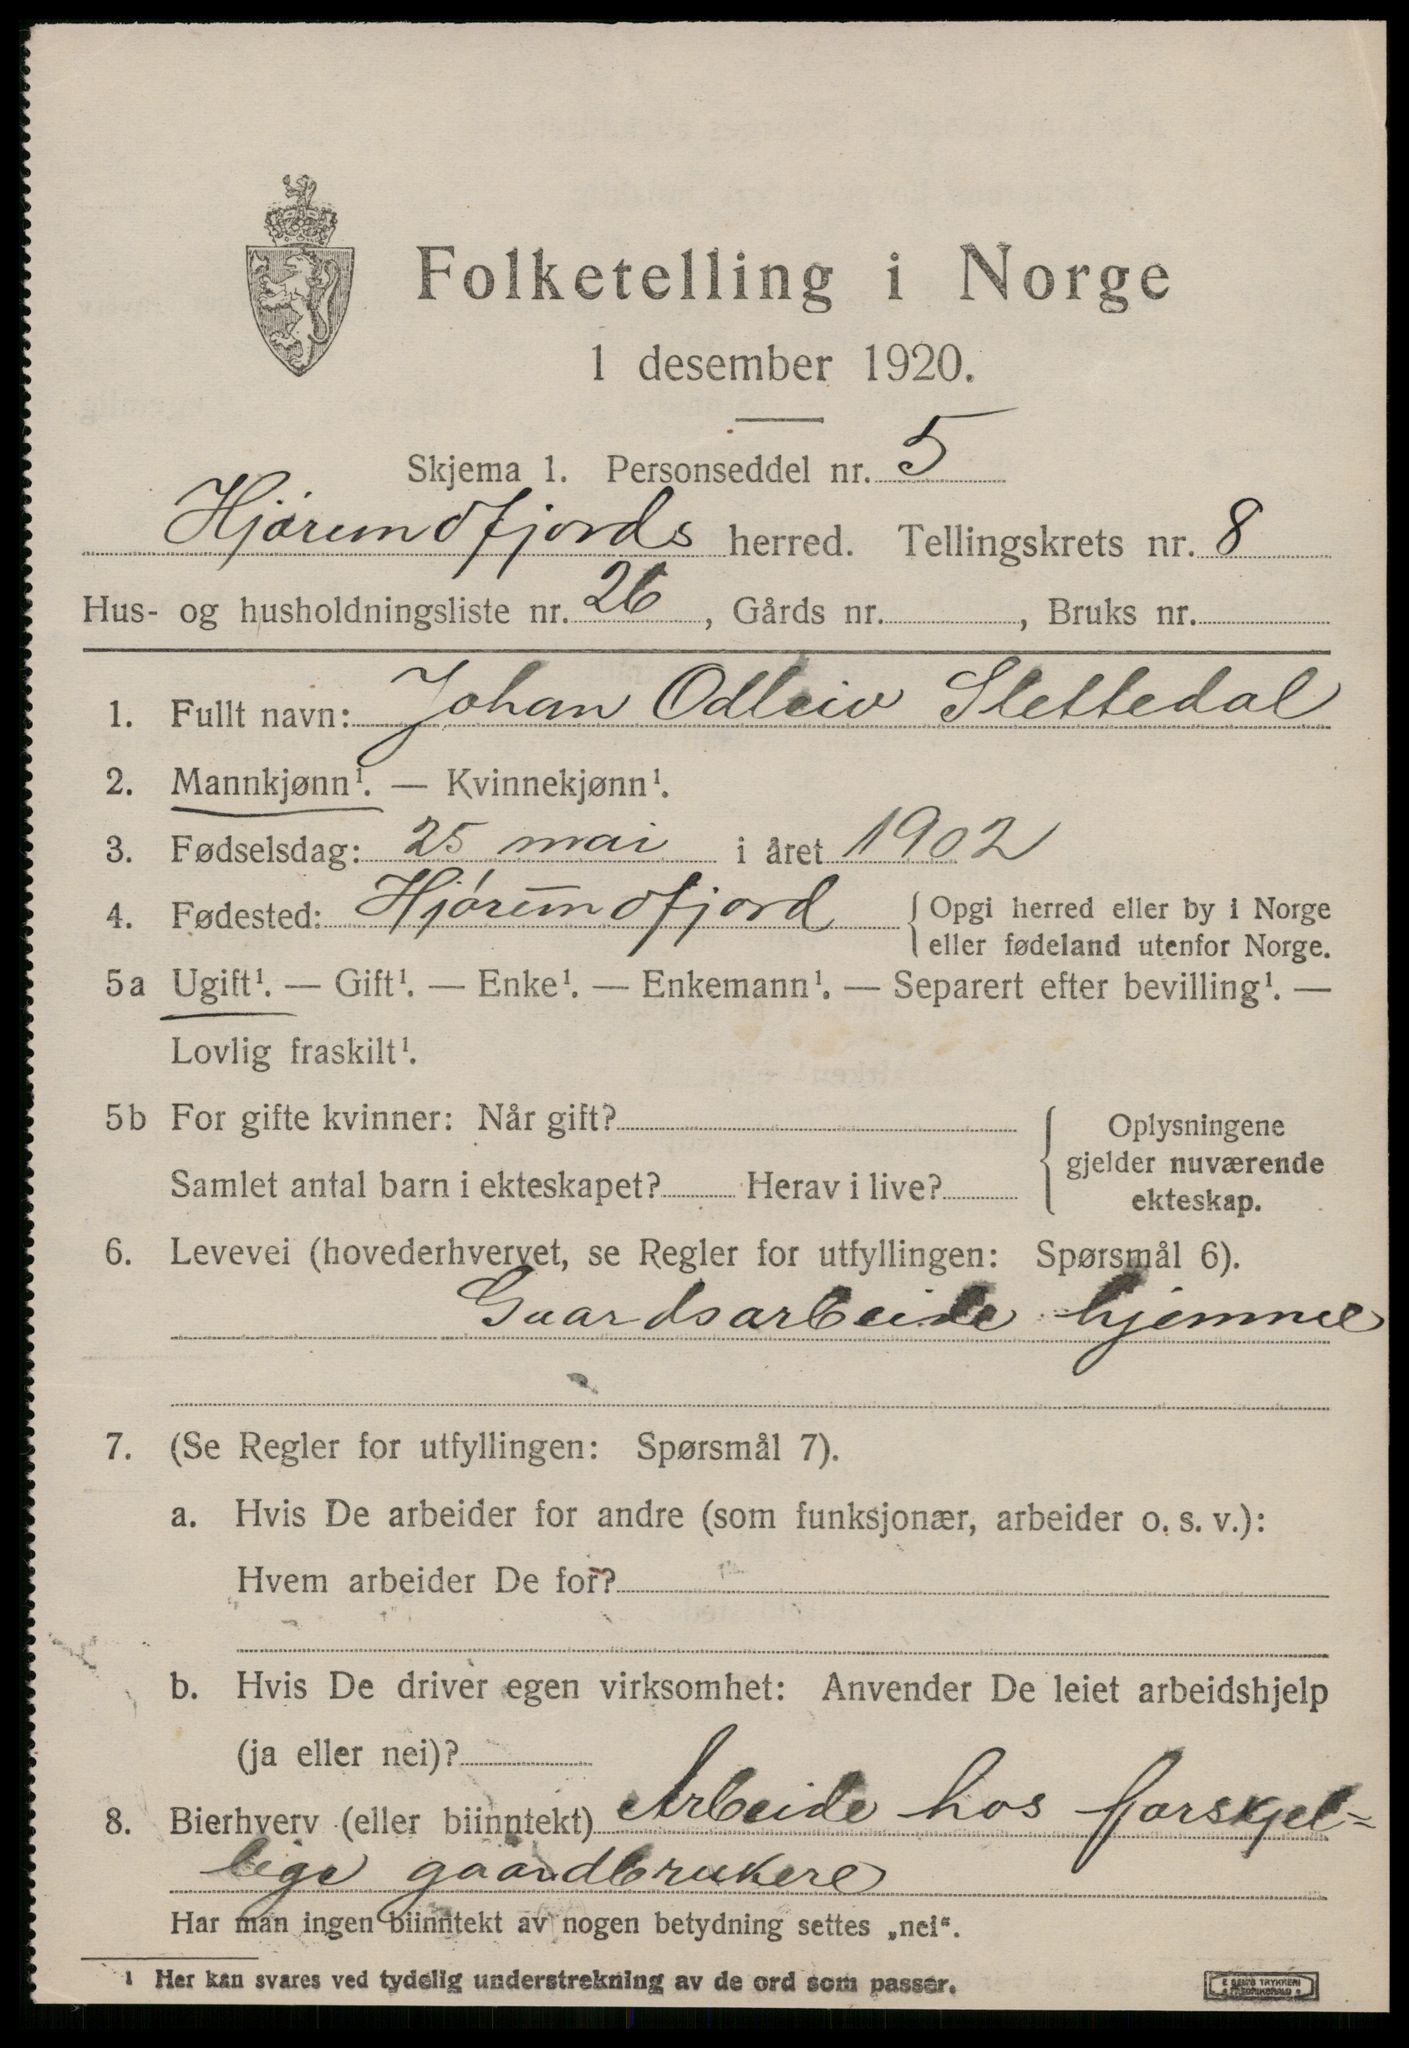 Folketelling i Norge
1 desember 1920.
Skjema 1. Personseddel nr. 5
Hjørundfjords herred. Tellingskrets nr. 8
Hus- og husholdningsliste nr. 26, Gårds nr. , Bruks nr.
1. Fullt navn: Johan Odleiv Slettedal
2. Mannkjønn¹. — Kvinnekjønn¹.
3. Fødselsdag: 25 mai i året 1902
4. Fødested: Hjørundfjord { Opgi herred eller by i Norge
eller fødeland utenfor Norge.
5a Ugift¹. — Gift¹. — Enke¹. — Enkemann¹. — Separert efter bevilling¹. —
Lovlig fraskilt¹.
5b For gifte kvinner: Når gift? { Oplysningene
gjelder nuværende
Samlet antal barn i ekteskapet? Herav i live? ekteskap.
6. Levevei (hovederhvervet, se Regler for utfyllingen: Spørsmål 6).
Gaardsarbeide hjemme
7. (Se Regler for utfyllingen: Spørsmål 7).
a. Hvis De arbeider for andre (som funksjonær, arbeider o. s. v.):
Hvem arbeider De for?
b. Hvis De driver egen virksomhet: Anvender De leiet arbeidshjelp
(ja eller nei)?
8. Bierhverv (eller biinntekt) Arbeide hos forskjel=
lige gaardbrukere
Har man ingen biinntekt av nogen betydning settes „nei“.
¹ Her kan svares ved tydelig understrekning av de ord som passer.